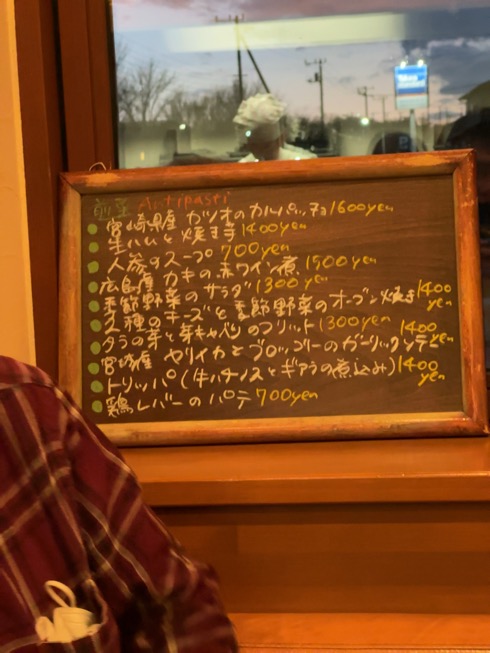 前菜 Antipasti
宮崎県産 カツオのカルパッチョ 1600yen
生ハムと焼き芋 1400yen
人参のスープ 700yen
広島産 カキの赤ワイン煮 1500yen
季節野菜のサラダ 1300yen
2種のチーズと季節野菜のオーブン焼き 1400yen
タラの芽と芽キャベツのフリット 1300yen
宮城産 ヤリイカとブロッコリーのガーリックソテー 1400yen
トリッパ(牛ハチノスとギアラの煮込み) 1400yen
鶏レバーのパテ 700yen